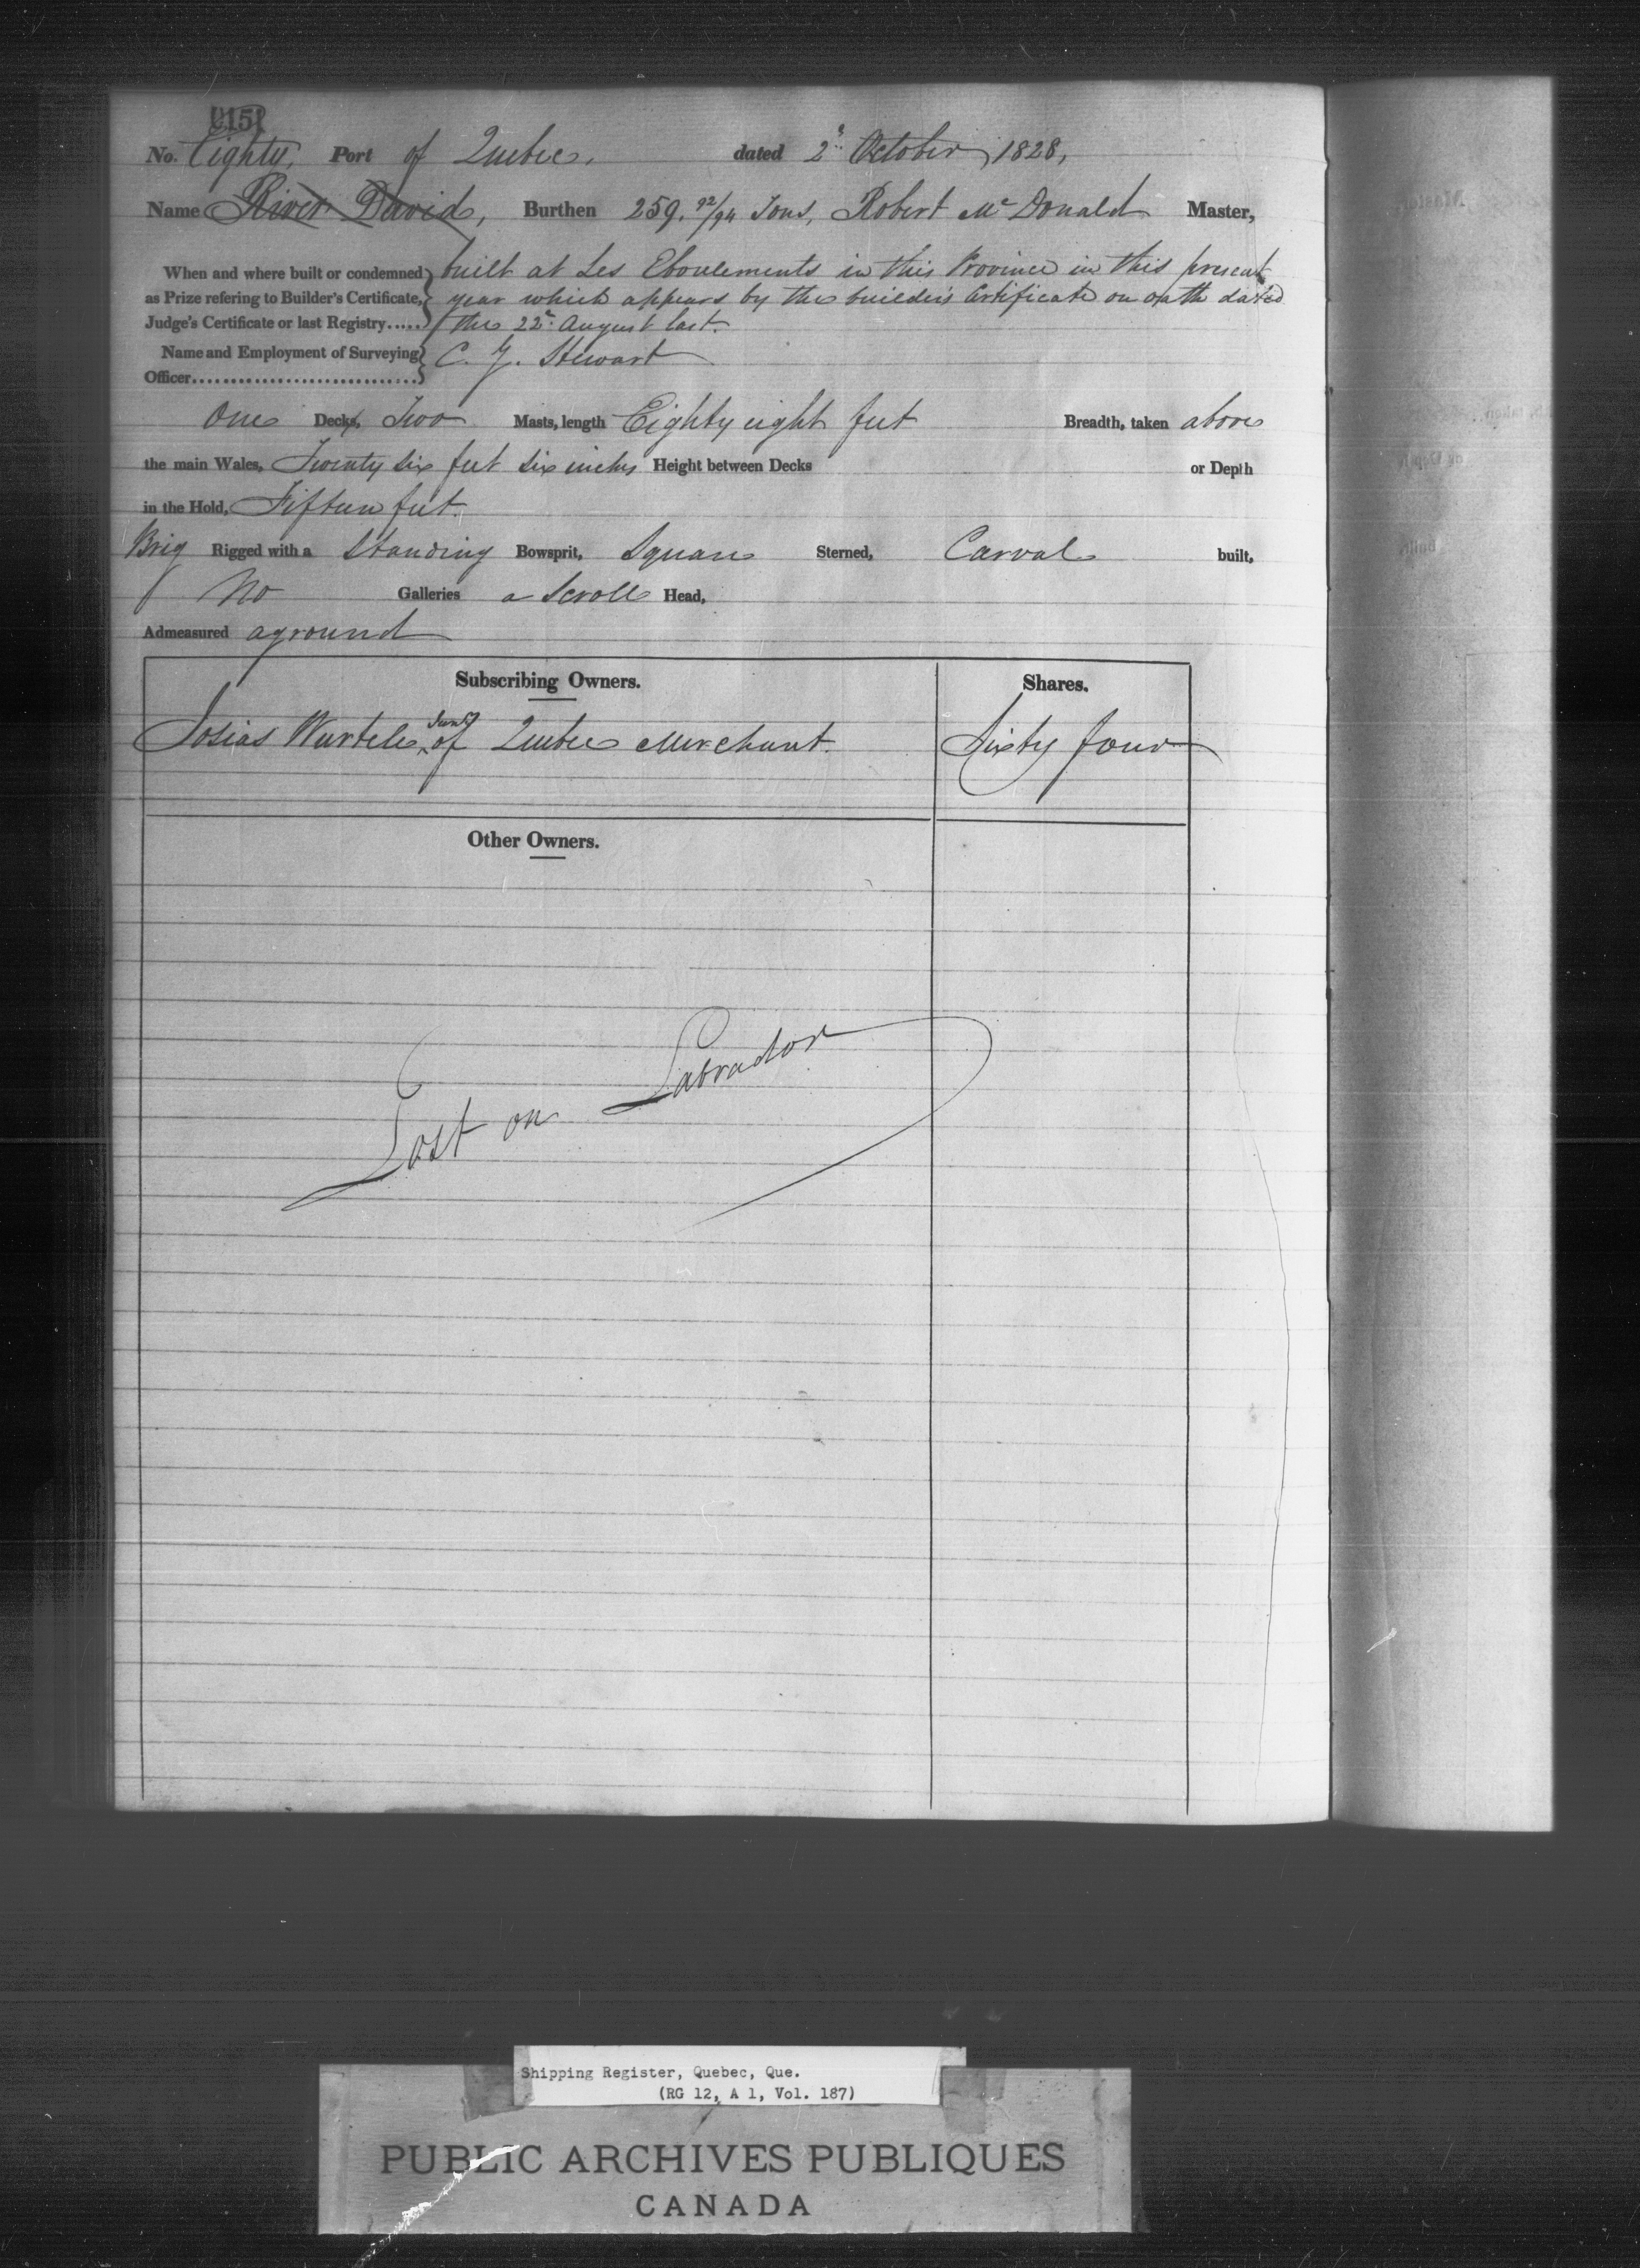 No. Eighty, Port of Quebec, dated 2d October, 1828,
Name River David, Burthen 259. 92/94 Tons, Robert Mc Donald Master,
When and where built or condemned as Prize refering to Builder's Certificate, Judge's Certificate or last Registry..... built at Les Eboulements in this Province in this present
year which appears by the builders Certificate on oath dated
the 22d August last.
Name and Employment of Surveying Officer.............................. C. G. Stewart
One Decks, Two Masts, length Eighty eight feet Breadth, taken above
the main Wales, Twenty six feet six inches Height between Decks or Depth
in the Hold, Fifteen feet.
Brig Rigged with a Standing Bowsprit, Square Sterned, Carval built,
No Galleries a Scroll Head,
Admeasured aground
Subscribing Owners. Shares.
Josias Wurtele Junr of Quebec Merchant. Sixty four
Other Owners.
Lost on Labrador
Shipping Register, Quebec, Que.
(RG 12, A 1, Vol. 187)
PUBLIC ARCHIVES PUBLIQUES
CANADA